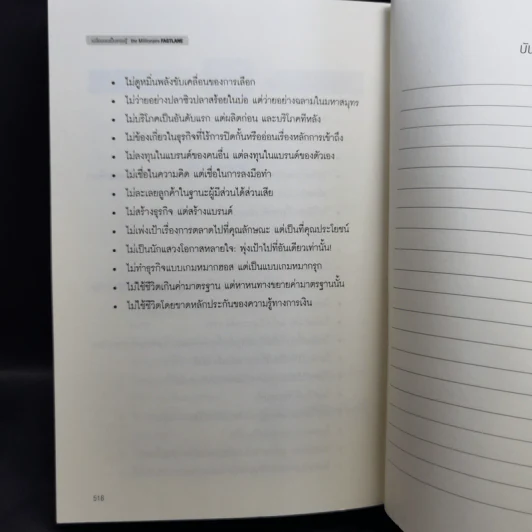 The Millionaire FASTLANE
ไม่ดูหมิ่นพลังขับเคลื่อนของการเลือก
ไม่ว่ายอย่างปลาซิวปลาสร้อยในบ่อ แต่ว่ายอย่างฉลามในมหาสมุทร
ไม่บริโภคเป็นอันดับแรก แต่ผลิตก่อน และบริโภคทีหลัง
ไม่ข้องเกี่ยวในธุรกิจที่ไร้การปิดกั้นหรืออ่อนเรื่องหลักการเข้าถึง
ไม่ลงทุนในแบรนด์ของคนอื่น แต่ลงทุนในแบรนด์ของตัวเอง
ไม่เชื่อในความคิด แต่เชื่อในการลงมือทำ
ไม่ละเลยลูกค้าในฐานะผู้มีส่วนได้ส่วนเสีย
ไม่สร้างธุรกิจ แต่สร้างแบรนด์
ไม่เพ่งเป้าเรื่องการตลาดไปที่คุณลักษณะ แต่เป็นที่คุณประโยชน์
ไม่เป็นนักแสวงโอกาสหลายใจ: พุ่งเป้าไปที่อันเดียวเท่านั้น!
ไม่ทำธุรกิจแบบเกมหมากฮอส แต่เป็นแบบเกมหมากรุก
ไม่ใช้ชีวิตเกินค่ามาตรฐาน แต่หาหนทางขยายค่ามาตรฐานนั้น
ไม่ใช้ชีวิตโดยขาดหลักประกันของความรู้ทางการเงิน
518